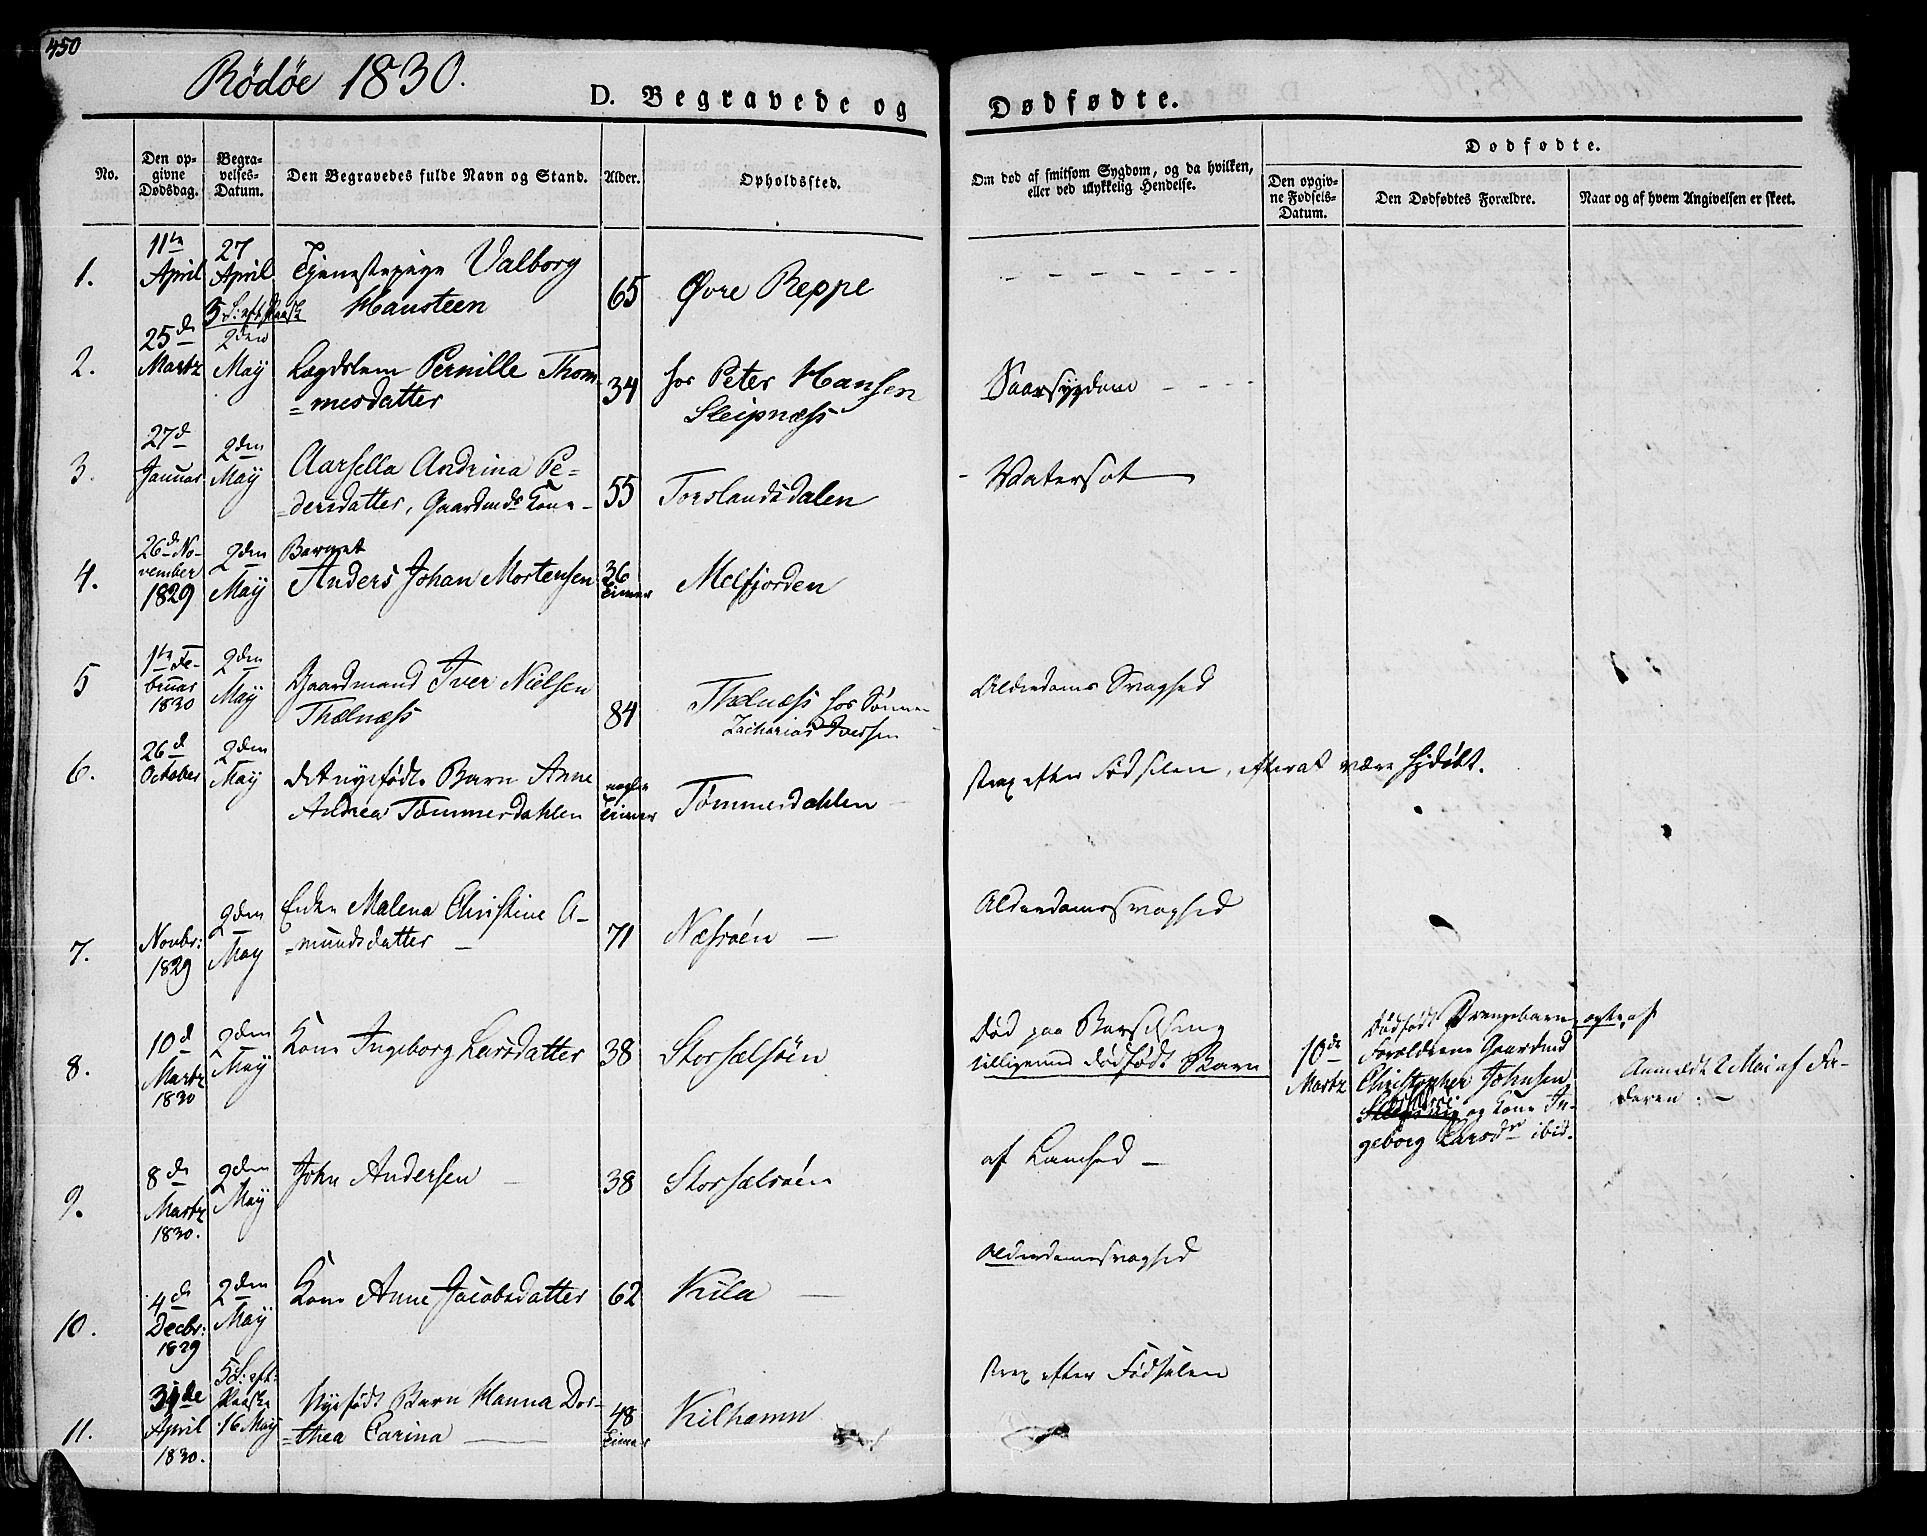 450
Rödøe 1830.
D. Begravede og Dødfødte.
No.
Den opgivne Dødsdag.
Begravelses-Datum.
Den Begravedes fulde Navn og Stand.
Alder.
Opholdssted.
Om død af smitsom Sygdom, og da hvilken, eller ved ulykkelig Hendelse.
Dødfødte.
Den opgivne Fødsels-Datum.
Den Dødfødtes Forældre.
Naar og af hvem Angivelsen er skeet.
1.
11te April
27 April
Tjenestepige Valborg
Hansteen
65
Øvre Reppe
3 S: eft. Paask
2.
25d Martz
2den May
Lægdslem Pernille Thom-
=mesdatter
34
hos Peter Hansen
Sleipnæss
Saarsygdom
3.
27d Januar
2den May
Aarsella Andrina Pe=
=dersdatter, Gaardmds Kone
55
Torslandsdalen
Vatersot
4.
26d No-
vember
1829
2den May
Barnet
Anders Johan Mortensen
36
Timer
Melfjorden
5
1te Fe-
bruar
1830
2den May
Gaardmand Iver Nielsen
Thælnæss
84
Thælnæss hos Sønnen
Zacharias Iversen
Alderdoms Svaghed
6.
26d October
2den May
det nyefødte Barn Anne
Andrea Tømmerdahlen
nogle
Timer
Tømmerdahlen
strax efter Fødselen, efterat være hjdøbt.
7.
Novbr:
1829
2den May
Enke Malena Christine A-
=mundsdatter
71
Næsøen
Alderdomssvaghed
8.
10d
Martz
1830
2den May
Kone Ingeborg Larsdatter
38
Storsælsöen
Død paa Barselseng
tilligemed dødfødt Barn
10de
Martz
Dødfødt Drengebarn, ægte, af
Forældrene Gaardmd
Christopher Johnsen
og Kone In-
geborg Larsdr ibid.
Anmeldt 2 Mai af Fa-
deren.
9.
8de
Martz
1830.
2den May
John Andersen
38
Storsælsöen
af Lamhed
10.
4de
Decbr:
1829
2den May
Kone Anne Jacobsdatter
62
Kila
Alderdomssvaghed
11.
April
1830.
5 S: eft:
Paaske
16 May
Nyefødt Barn Hanna Dor-
=thea Carina
48
Timer
Kilhamn
Strax efter Fødselen